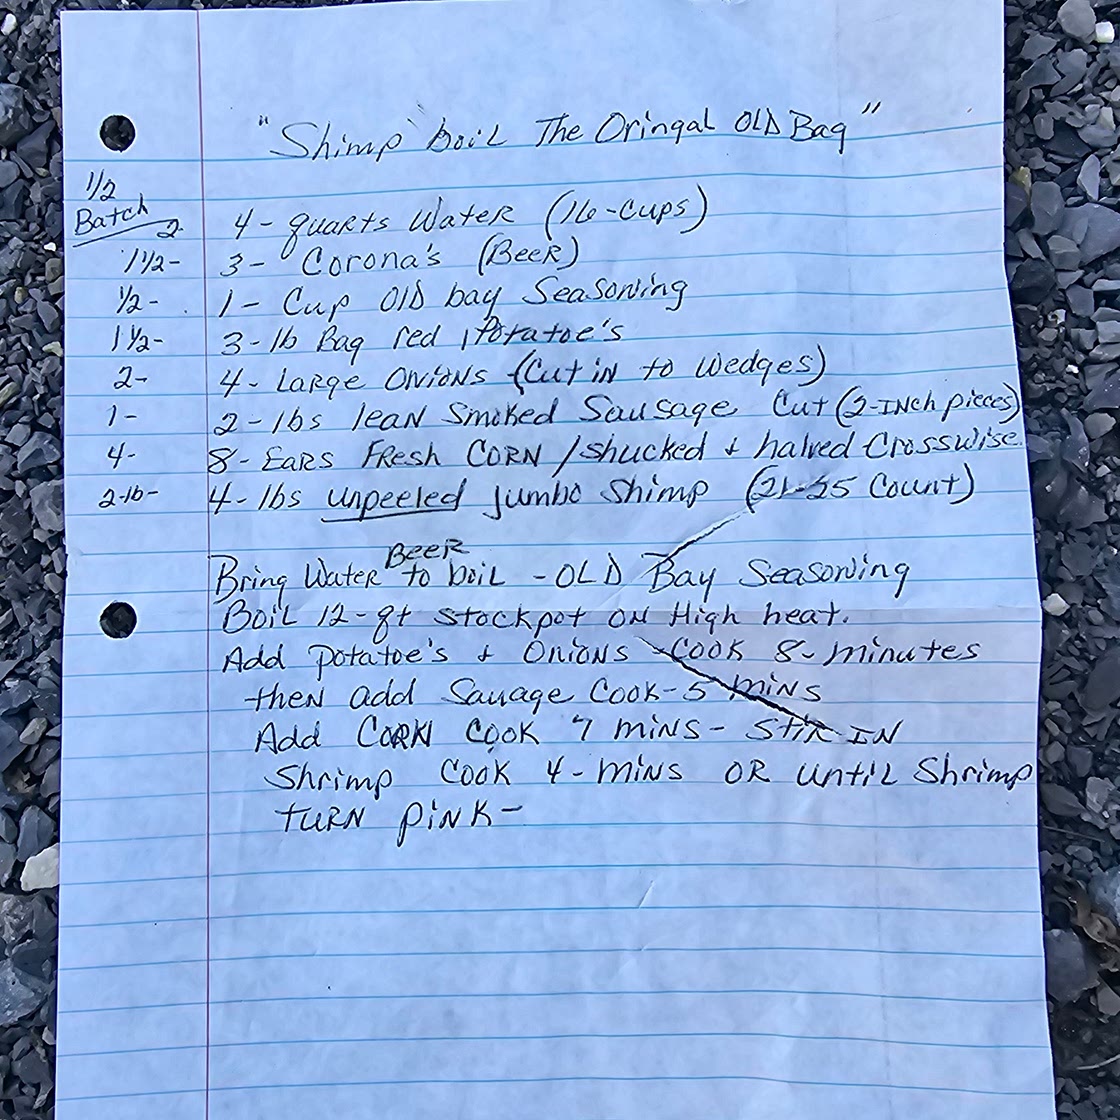 "Shimp boil The Oringal OLD Bag"
1/2
Batch
2 4- quarts Water (16-cups)
1 1/2- 3- Corona's (Beer)
1/2- 1- Cup Old bay Seasoning
1 1/2- 3-lb Bag red Potatoe's
2- 4- Large Onions (Cut in to wedges)
1- 2-lbs lean Smoked Sausage Cut (2-Inch pieces)
4- 8- Ears Fresh Corn / shucked + halved Crosswise
2-lb- 4-lbs unpeeled jumbo Shimp (21-25 Count)
Beer
Bring Water to boil - OLD Bay Seasoning
Boil 12-qt stockpot on High heat.
Add potatoe's + Onions - Cook 8-minutes
then add Sauage Cook-5 mins
Add Corn Cook 7 mins- Stir in
Shrimp Cook 4-mins or until Shrimp
turn pink-